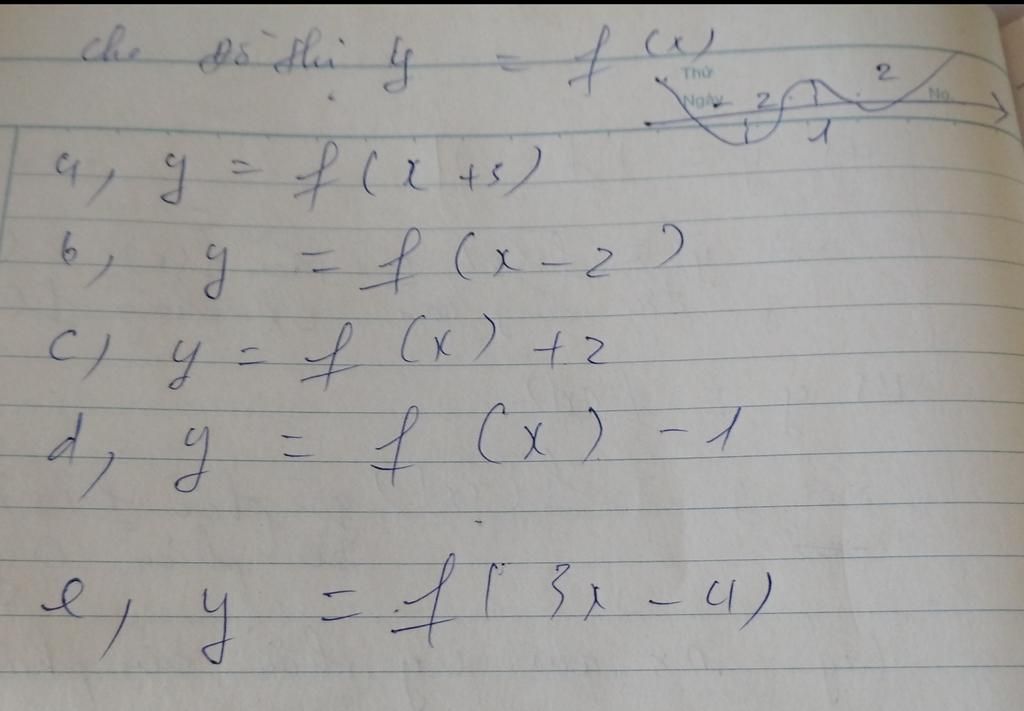 Cho đồ thị y = f(x)
Thứ
Ngày 2 2 No
1
a, y = f(x+3)
b, y = f(x-2)
c) y = f(x) +2
d, y = f(x) -1
e, y = f(3x-4)